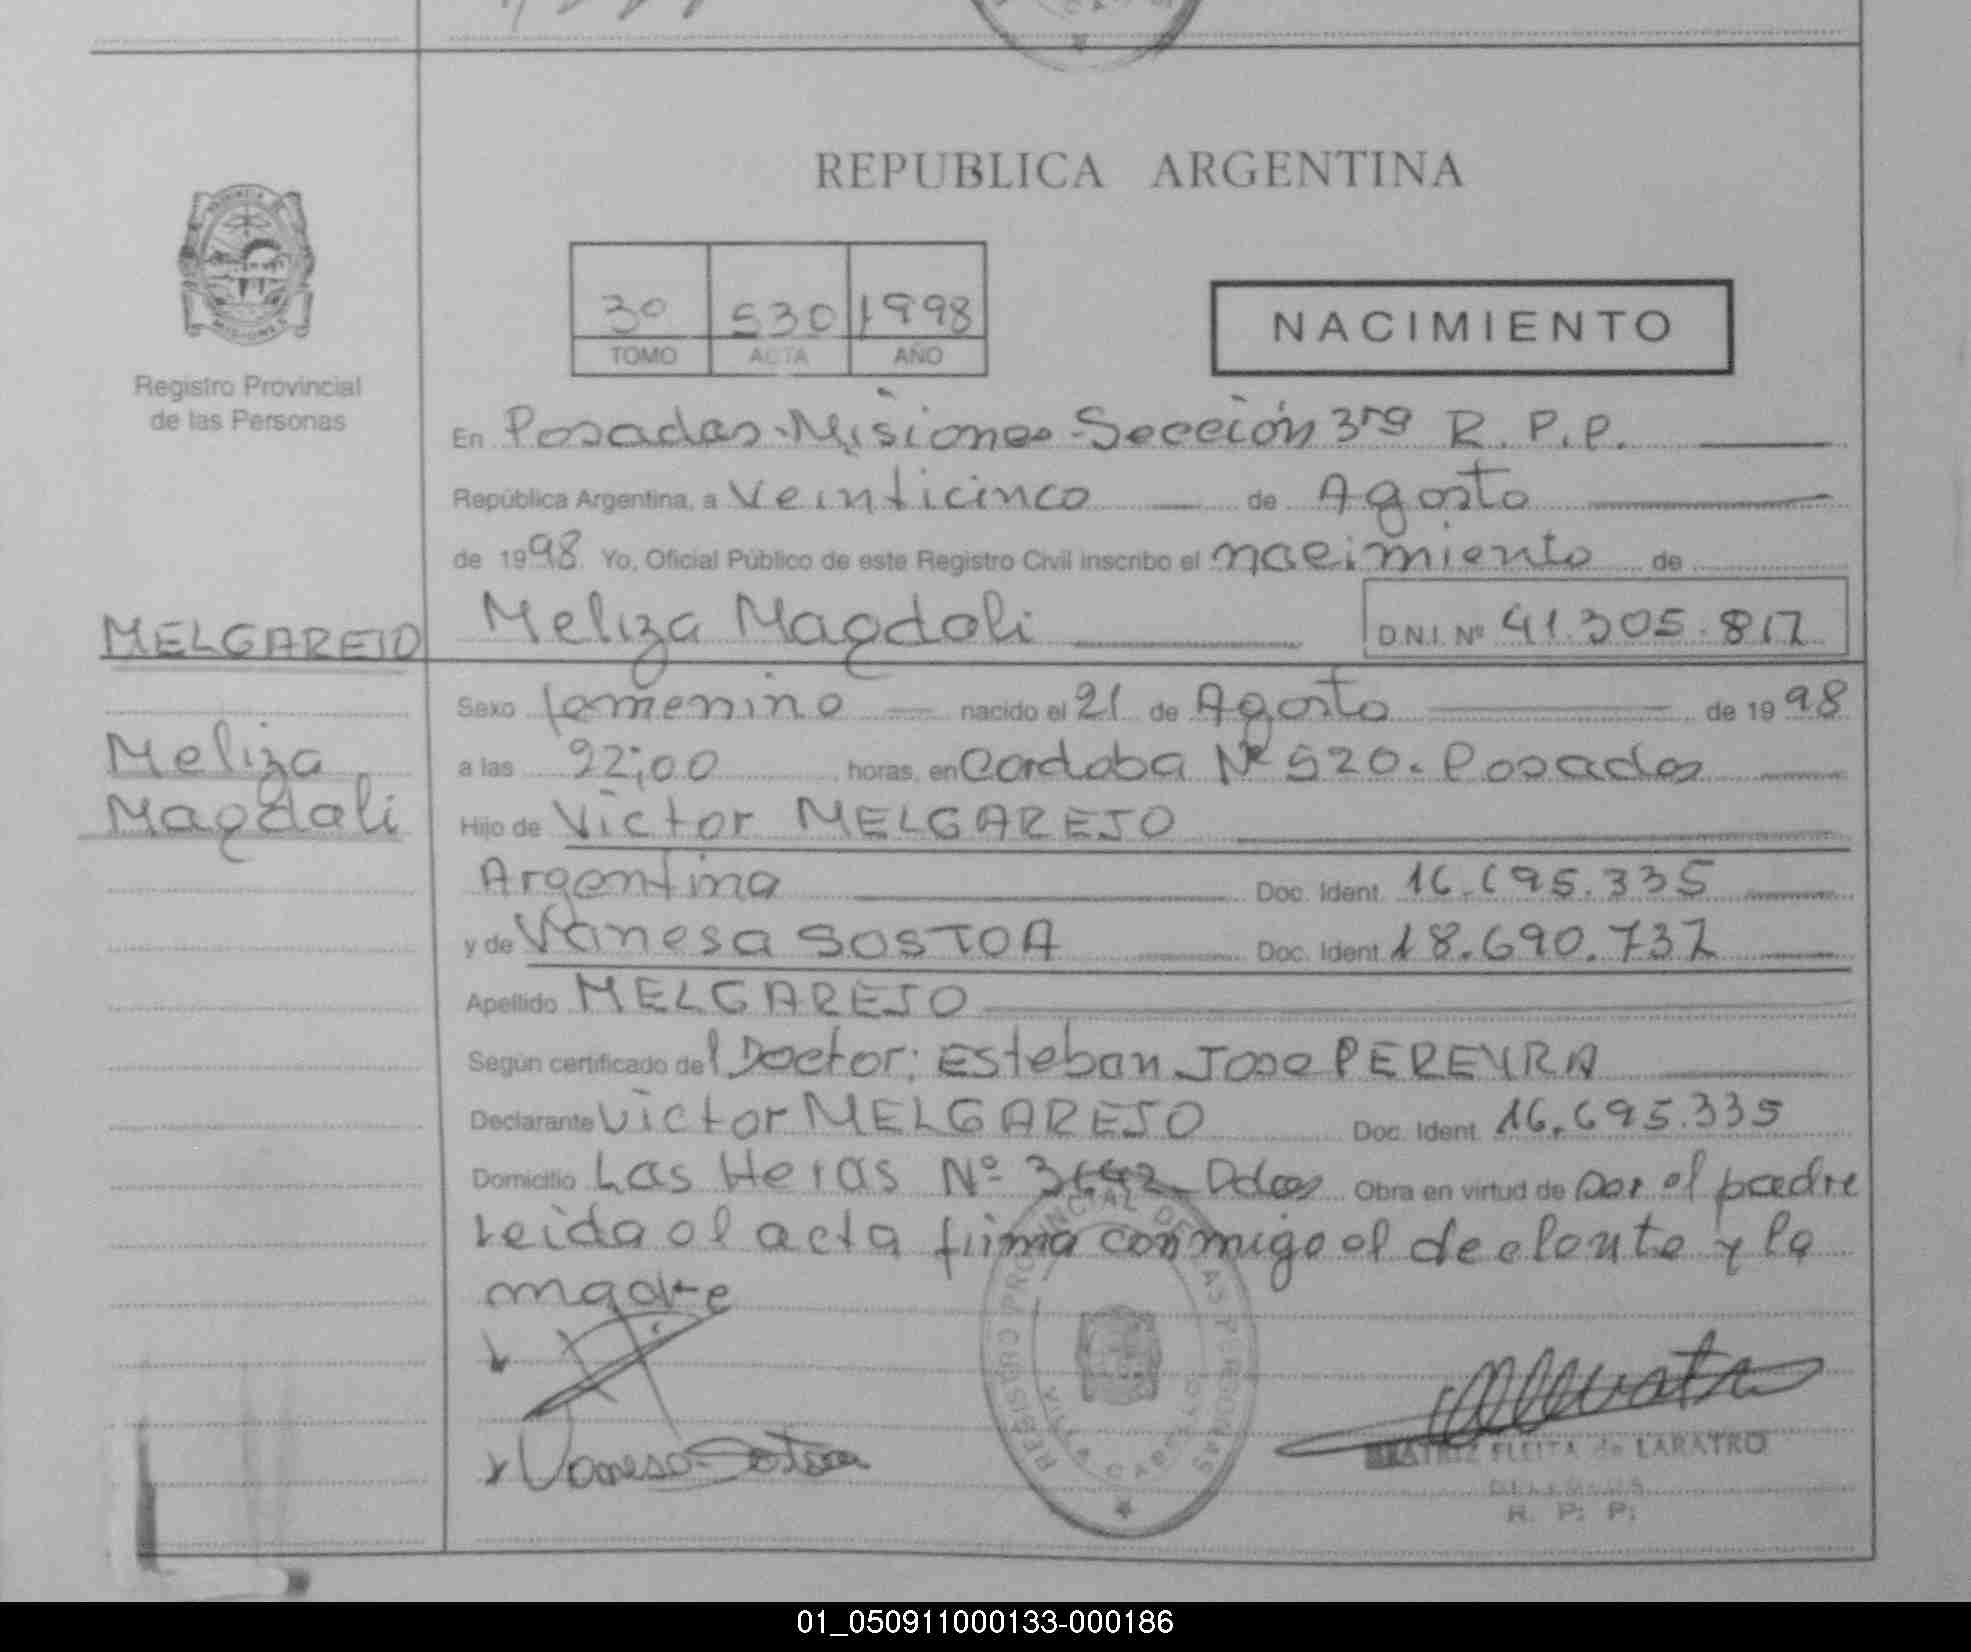 REPUBLICA ARGENTINA
3º 530 1998
TOMO ACTA AÑO
NACIMIENTO
Registro Provincial
de las Personas
En Posadas-Misiones-Sección 3ra R.P.P.
República Argentina, a Veinticinco de Agosto
de 1998. Yo, Oficial Público de este Registro Civil inscribo el nacimiento de
MELGAREJO
Meliza Magdali
D.N.I. Nº 41.305.817
Sexo femenino nacido el 21 de Agosto de 1998
Meliza
Magdali
a las 22:00 horas, en Cordoba Nº 520. Posadas
Hijo de Victor MELGAREJO
Argentina Doc. Ident. 16.695.335
y de Vanesa SOSTOA Doc. Ident. 18.690.737
Apellido MELGAREJO
Según certificado del Doctor: Esteban Jose PEREYRA
Declarante Victor MELGAREJO Doc. Ident. 16.695.335
Domicilio Las Heras Nº Pdas Obra en virtud de ser el padre
leida el acta firma conmigo el declante y la
madre
REGISTRO PROVINCIAL DE LAS PERSONAS
VILLA CABELLO
Vanesa Sostoa
BEATRIZ FLEITA de LARATRO
R. P. P.
01_050911000133-000186